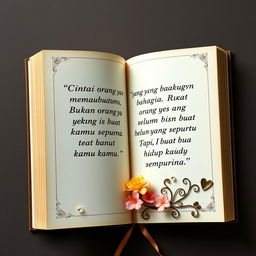 “Cintai orang ya
memaubutumu,
Bukan orang ya
yeking is buat
kamu sepurna.
teat banut
kamu kamu."
"yang yang baakugvn
bahagia. Rukat
orang yes ang
selum bisn buat
belun yang sepurtu
Tapi, I buat bua
hidup kaúdy
sempurina.”